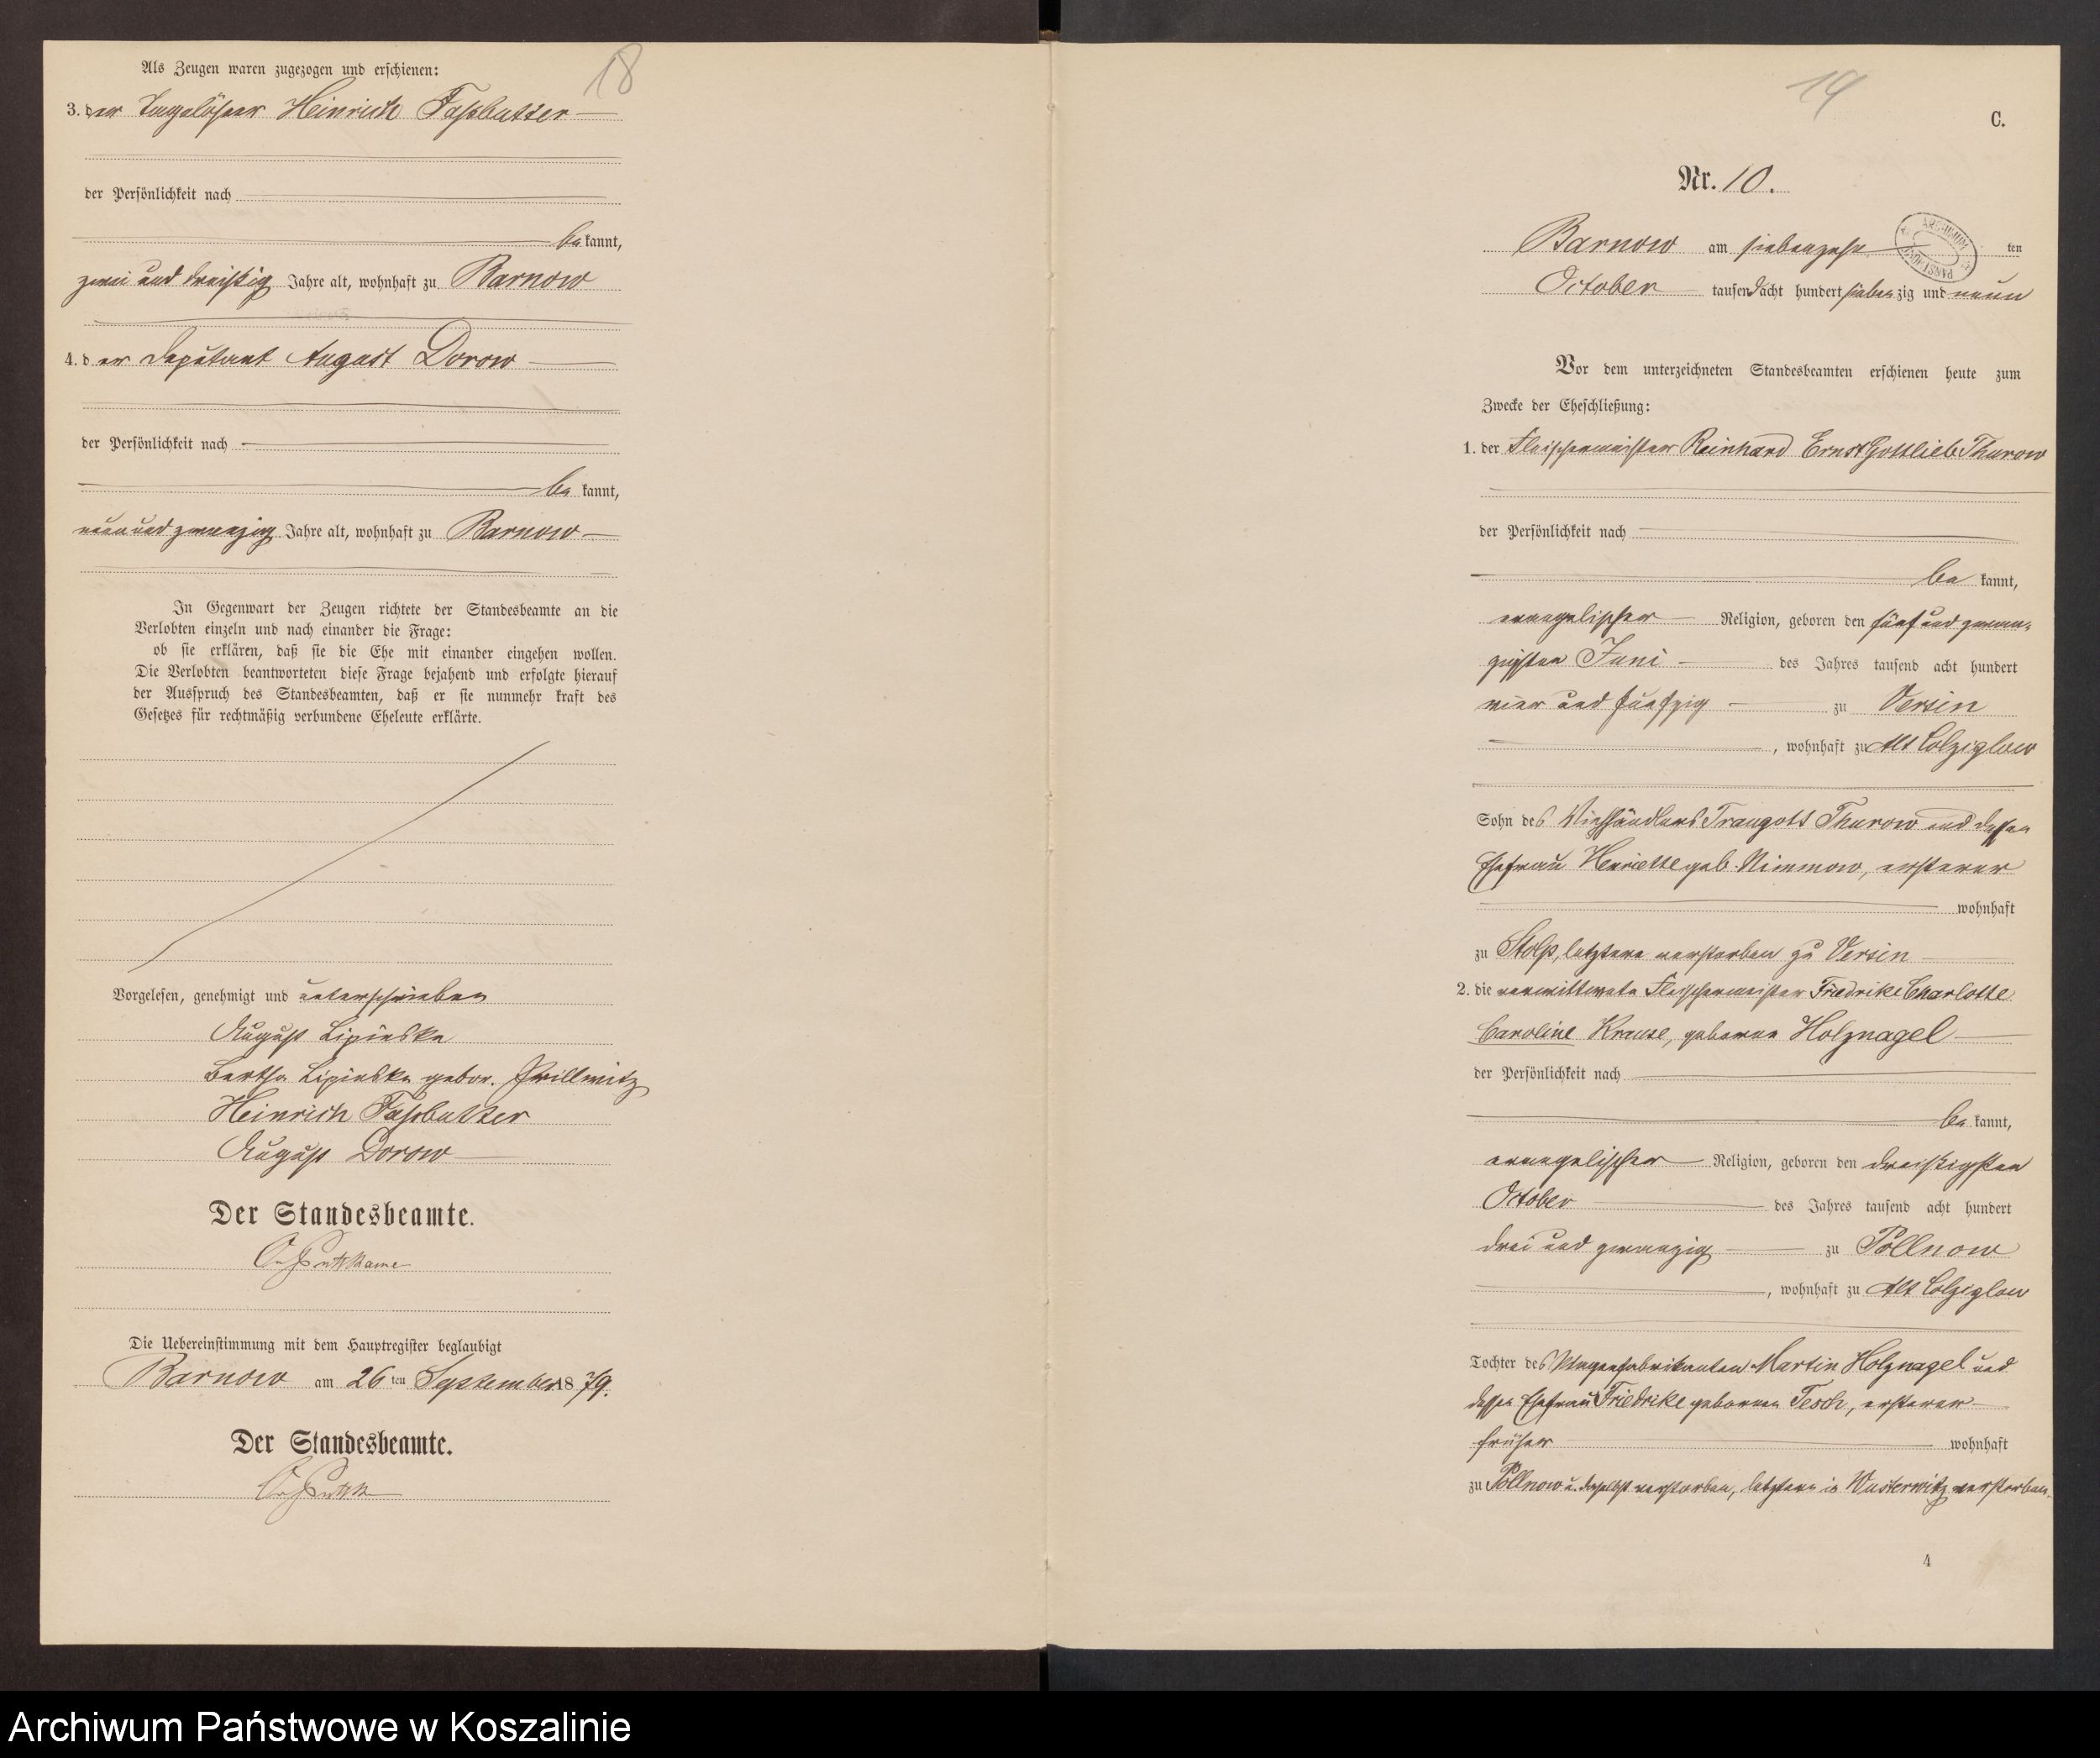 18
Als Zeugen waren zugezogen und erschienen:
3. der Tagelöhner Heinrich Faßbutter
der Persönlichkeit nach
bekannt,
zwei und dreißig Jahre alt, wohnhaft zu Barnow
4. der Deputant August Dorow
der Persönlichkeit nach
bekannt,
neun und zwanzig Jahre alt, wohnhaft zu Barnow
In Gegenwart der Zeugen richtete der Standesbeamte an die
Verlobten einzeln und nach einander die Frage:
ob sie erklären, daß sie die Ehe mit einander eingehen wollen.
Die Verlobten beantworteten diese Frage bejahend und erfolgte hierauf
der Ausspruch des Standesbeamten, daß er sie nunmehr kraft des
Gesetzes für rechtmäßig verbundene Eheleute erklärte.
Vorgelesen, genehmigt und unterschrieben
August Lipinske
Bertha Lipinske gebor. Prillwitz
Heinrich Faßbutter
August Dorow
Der Standesbeamte.
Die Uebereinstimmung mit dem Hauptregister beglaubigt
Barnow am 26 ten September 1879.
Der Standesbeamte.
19
C.
Nr. 10.
Barnow am siebenzehn ten
October tausend acht hundert siebenzig und neun
Vor dem unterzeichneten Standesbeamten erschienen heute zum
Zwecke der Eheschließung:
1. der Fleischermeister Reinhard Ernst Gottlieb Thurow
der Persönlichkeit nach
bekannt,
evangelischer Religion, geboren den fünf und zwan-
zigsten Juni des Jahres tausend acht hundert
vier und fünfzig zu Versin
, wohnhaft zu Alt Colziglow
Sohn des Viehhändlers Traugott Thurow und dessen
Ehefrau Henriette geb. Nimmow, ersterer
wohnhaft
zu Stolp, letztere verstorben zu Versin
2. die verwittwete Fleischermeister Friedrike Charlotte
Caroline Krause, geborene Holznagel
der Persönlichkeit nach
bekannt,
evangelischer Religion, geboren den dreißigsten
October des Jahres tausend acht hundert
drei und zwanzig zu Pollnow
, wohnhaft zu Alt Colziglow
Tochter des Martin Holznagel und
dessen Ehefrau Friedrike geborenen Tesch, ersterer
früher wohnhaft
zu Pollnow u. daselbst verstorben, letztere in Wusterwitz verstorben.
4
Archiwum Państwowe w Koszalinie